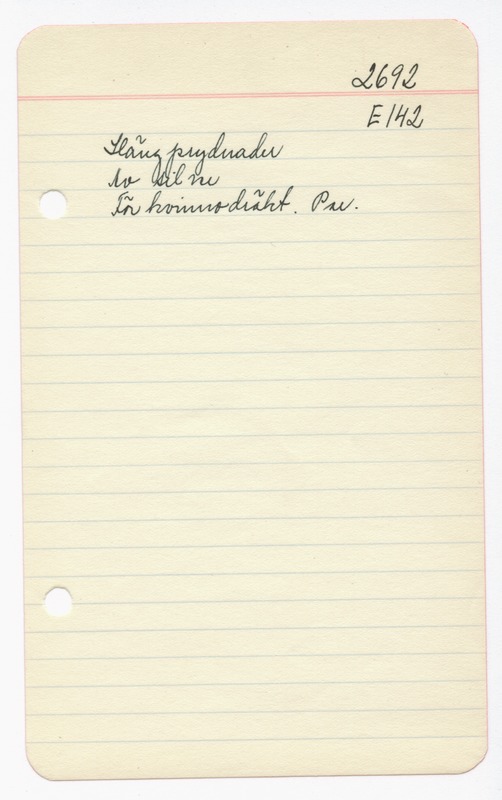 2692
E142
Hängprydnader
Av silver
För kvinnodräkt. Par.